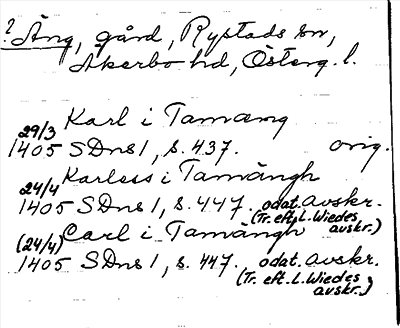 ? Äng, gård, Rystads sn,
Åkerbo hd, Österg. l.
Karl i Tamæng
29/3
1405 SDns 1, s. 437. orig.
Karless i Tamängh
24/4
1405 SDns 1, s. 447. odat. avskr.
(Tr. eft. L. Wiedes avskr.)
(24/4) Carl i Tamängh
1405 SDns 1, s. 447. odat. avskr.
(Tr. eft. L. Wiedes
avskr.)